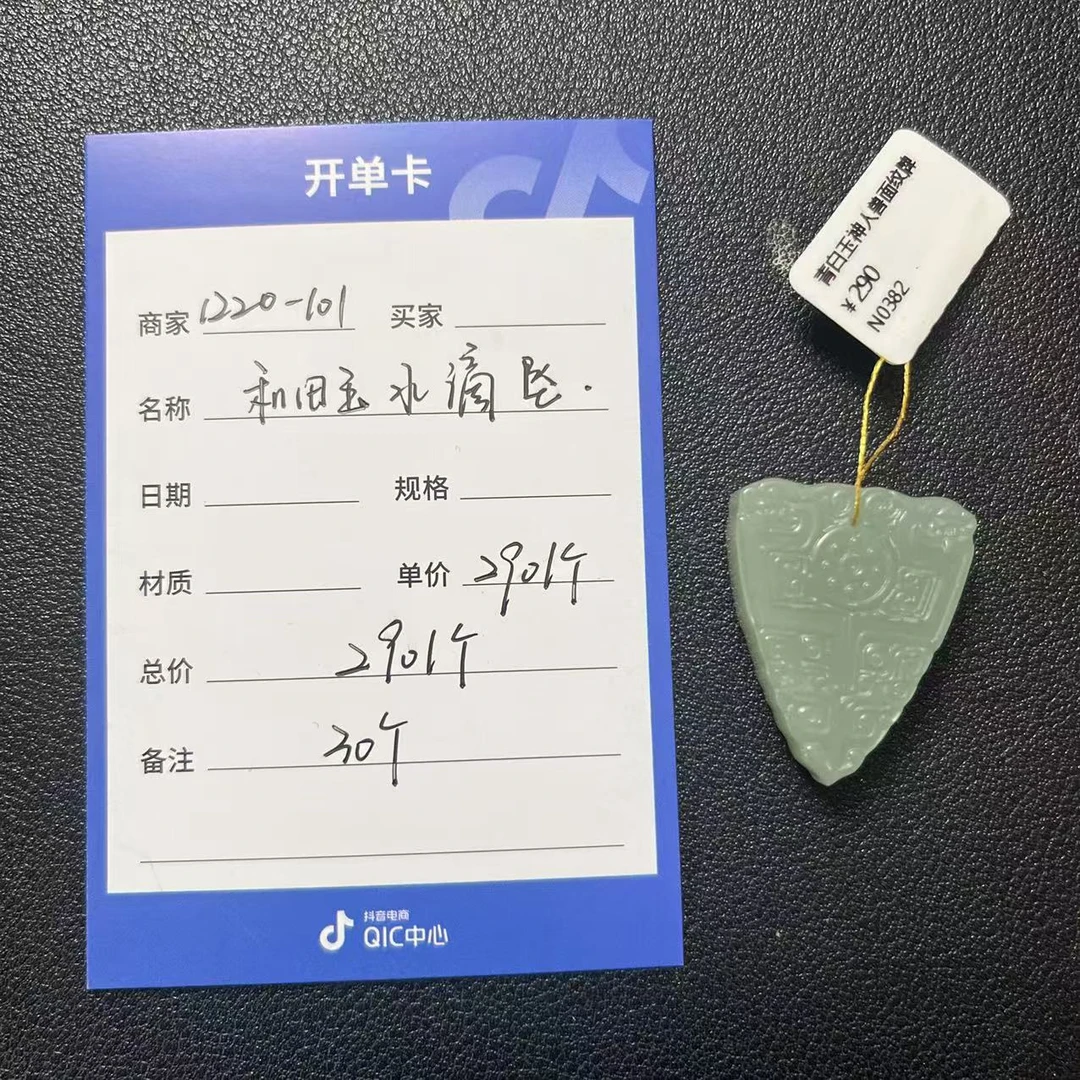 开单卡
商家 1220-101 买家
名称 和田玉水滴坠.
日期 规格
材质 单价 2901个
总价 2901个
备注 30个
抖音电商
QIC中心
青白玉神人兽面纹佩
¥290
N0382